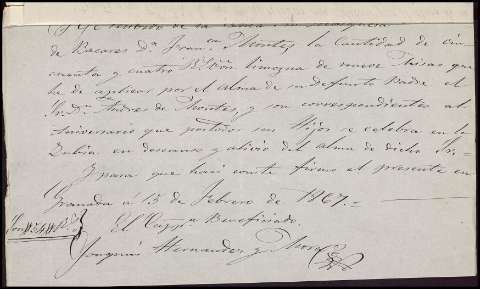 he recibido de la
de Bacares Dª. Fran.ca Montes la Cantidad de cin
cuenta y cuatro Rs. Von limosna de nueve Misas que
he de aplicar por el alma de su defunto Padre el
Sr. Dn. Andres de Montes, y son correspondientes al
Aniversario que por todos sus Hijos se celebra en la
Zubia, en descanso y alivio del alma de dicho Sr.
Y para que haci conste firmo el presente en
Granada á 15 de Febrero de 1867.
Son # 54 # Rs. El Beneficiado
Joaquin Hernandez y